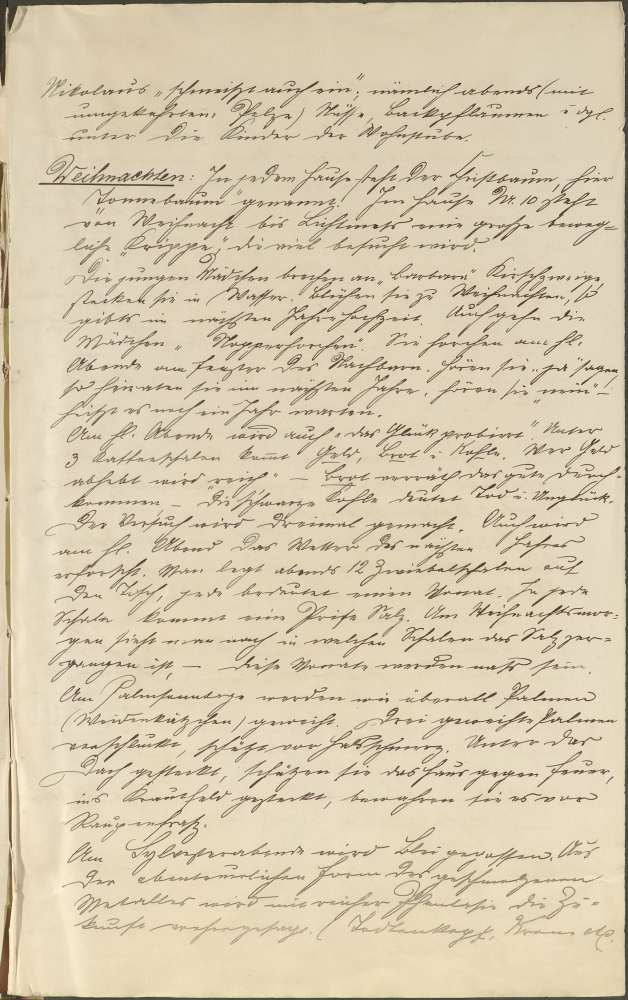 Nikolaus „schmeißt auch ein", nämlich abends (mit
umgekehrtem Pelze) Nüsse, Backpflaumen u. dgl.
unter die Kinder der Wohnstube.
Weihnachten: In jedem Hause steht der Christbaum, hier
„Tonnebaum" genannt. Im Hause Nr. 10 steht
von Weihnacht bis Lichtmess eine große beweg-
liche „Krippe", die viel besucht wird.
Die jungen Mädchen brechen an „Barbara" Kirschzweige,
stecken sie in Wasser. Blühen sie zu Weihnachten, so
gibts im nächsten Jahre Hochzeit. Auch gehn die
Mädchen „Nopperhorchen". Sie horchen am hl.
Abende am Fenster des Nachbarn. Hören sie „ja" sagen,
so heiraten sie im nächsten Jahre, hören sie „nein" –
heißt es noch ein Jahr warten.
Am hl. Abende wird auch „das Glück probiert". Unter
3 Kaffeeschalen kommt Geld, Brot u. Kohle. Wer Geld
abhebt wird „reich" – Brot verräth das gute Durch-
kommen – die schwarze Kohle deutet Tod u. Unglück.
Der Versuch wird dreimal gemacht. Auch wird
am hl. Abend das Wetter des nächsten Jahres
erforscht. Man legt abends 12 Zwiebelschalen auf
den Tisch, jede bedeutet einen Monat. In jede
Schale kommt eine Prise Salz. Am Weihnachtsmor-
gen sieht man nach in welchen Schalen das Salz zer-
gangen ist, – diese Monate werden naß sein.
Am Palmsonntage werden wie überall Palmen
(Weidenkätzchen) geweiht. Drei geweihte Palmen
verschluckt, schützt vor Halsschmerz. Unter das
Dach gesteckt, schützen sie das Haus gegen Feuer,
ins Krautfeld gesteckt, bewahren sie es vor
Raupenfraß.
Am Sylvesterabende wird Blei gegossen. Aus
der abenteuerlichen Form des geschmolzenen
Metalles wird mit reicher Phantasie die Zu-
kunft vorhergesagt. (Todtenkopf, Krone etc.